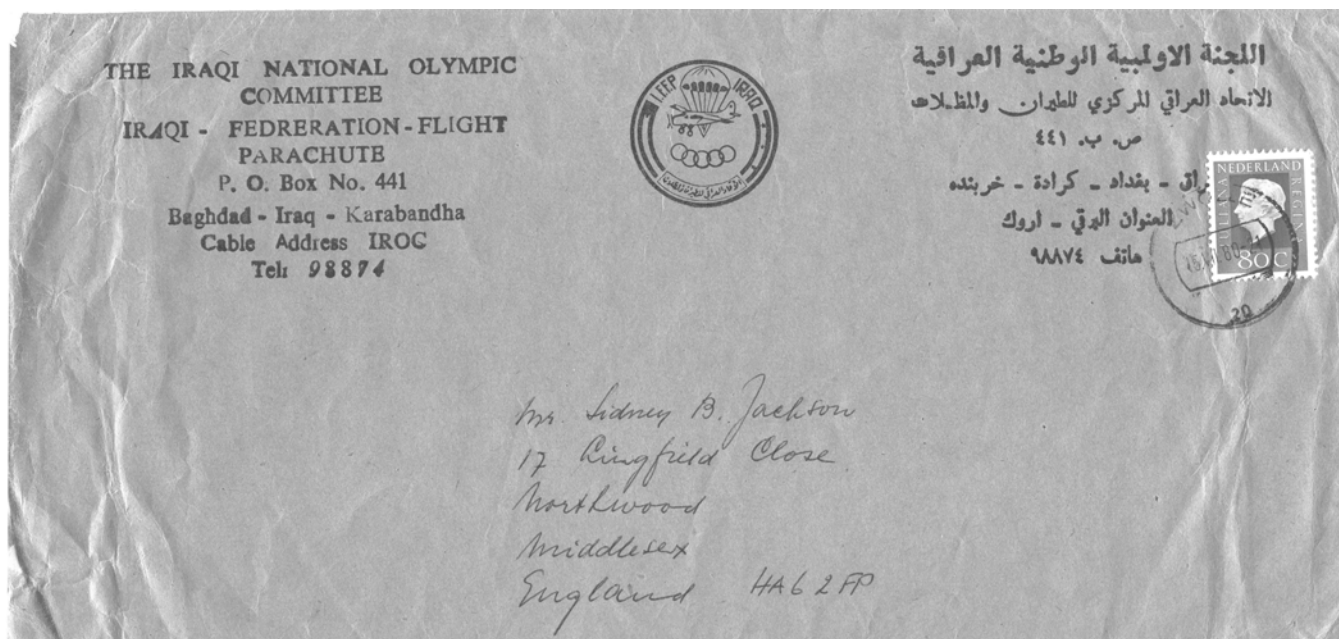 THE IRAQI NATIONAL OLYMPIC
COMMITTEE
IRAQI - FEDRERATION-FLIGHT
PARACHUTE
P. O. Box No. 441
Baghdad - Iraq - Karabandha
Cable Address IROC
Tel: 98874
I.F.F.P IRAQ
اللجنة الاولمبية الوطنية العراقية
الاتحاد العراقي المركزي للطيران والمظلات
ص. ب. ٤٤١
- بغداد - كرادة - خربنده
العنوان البرقي - اروك
هاتف ٩٨٨٧٤
NEDERLAND
JULIANA REGINA
80C
20
Mr. Sidney B. Jackson
17 Lingfield Close
Northwood
Middlesex
England HA6 2FP